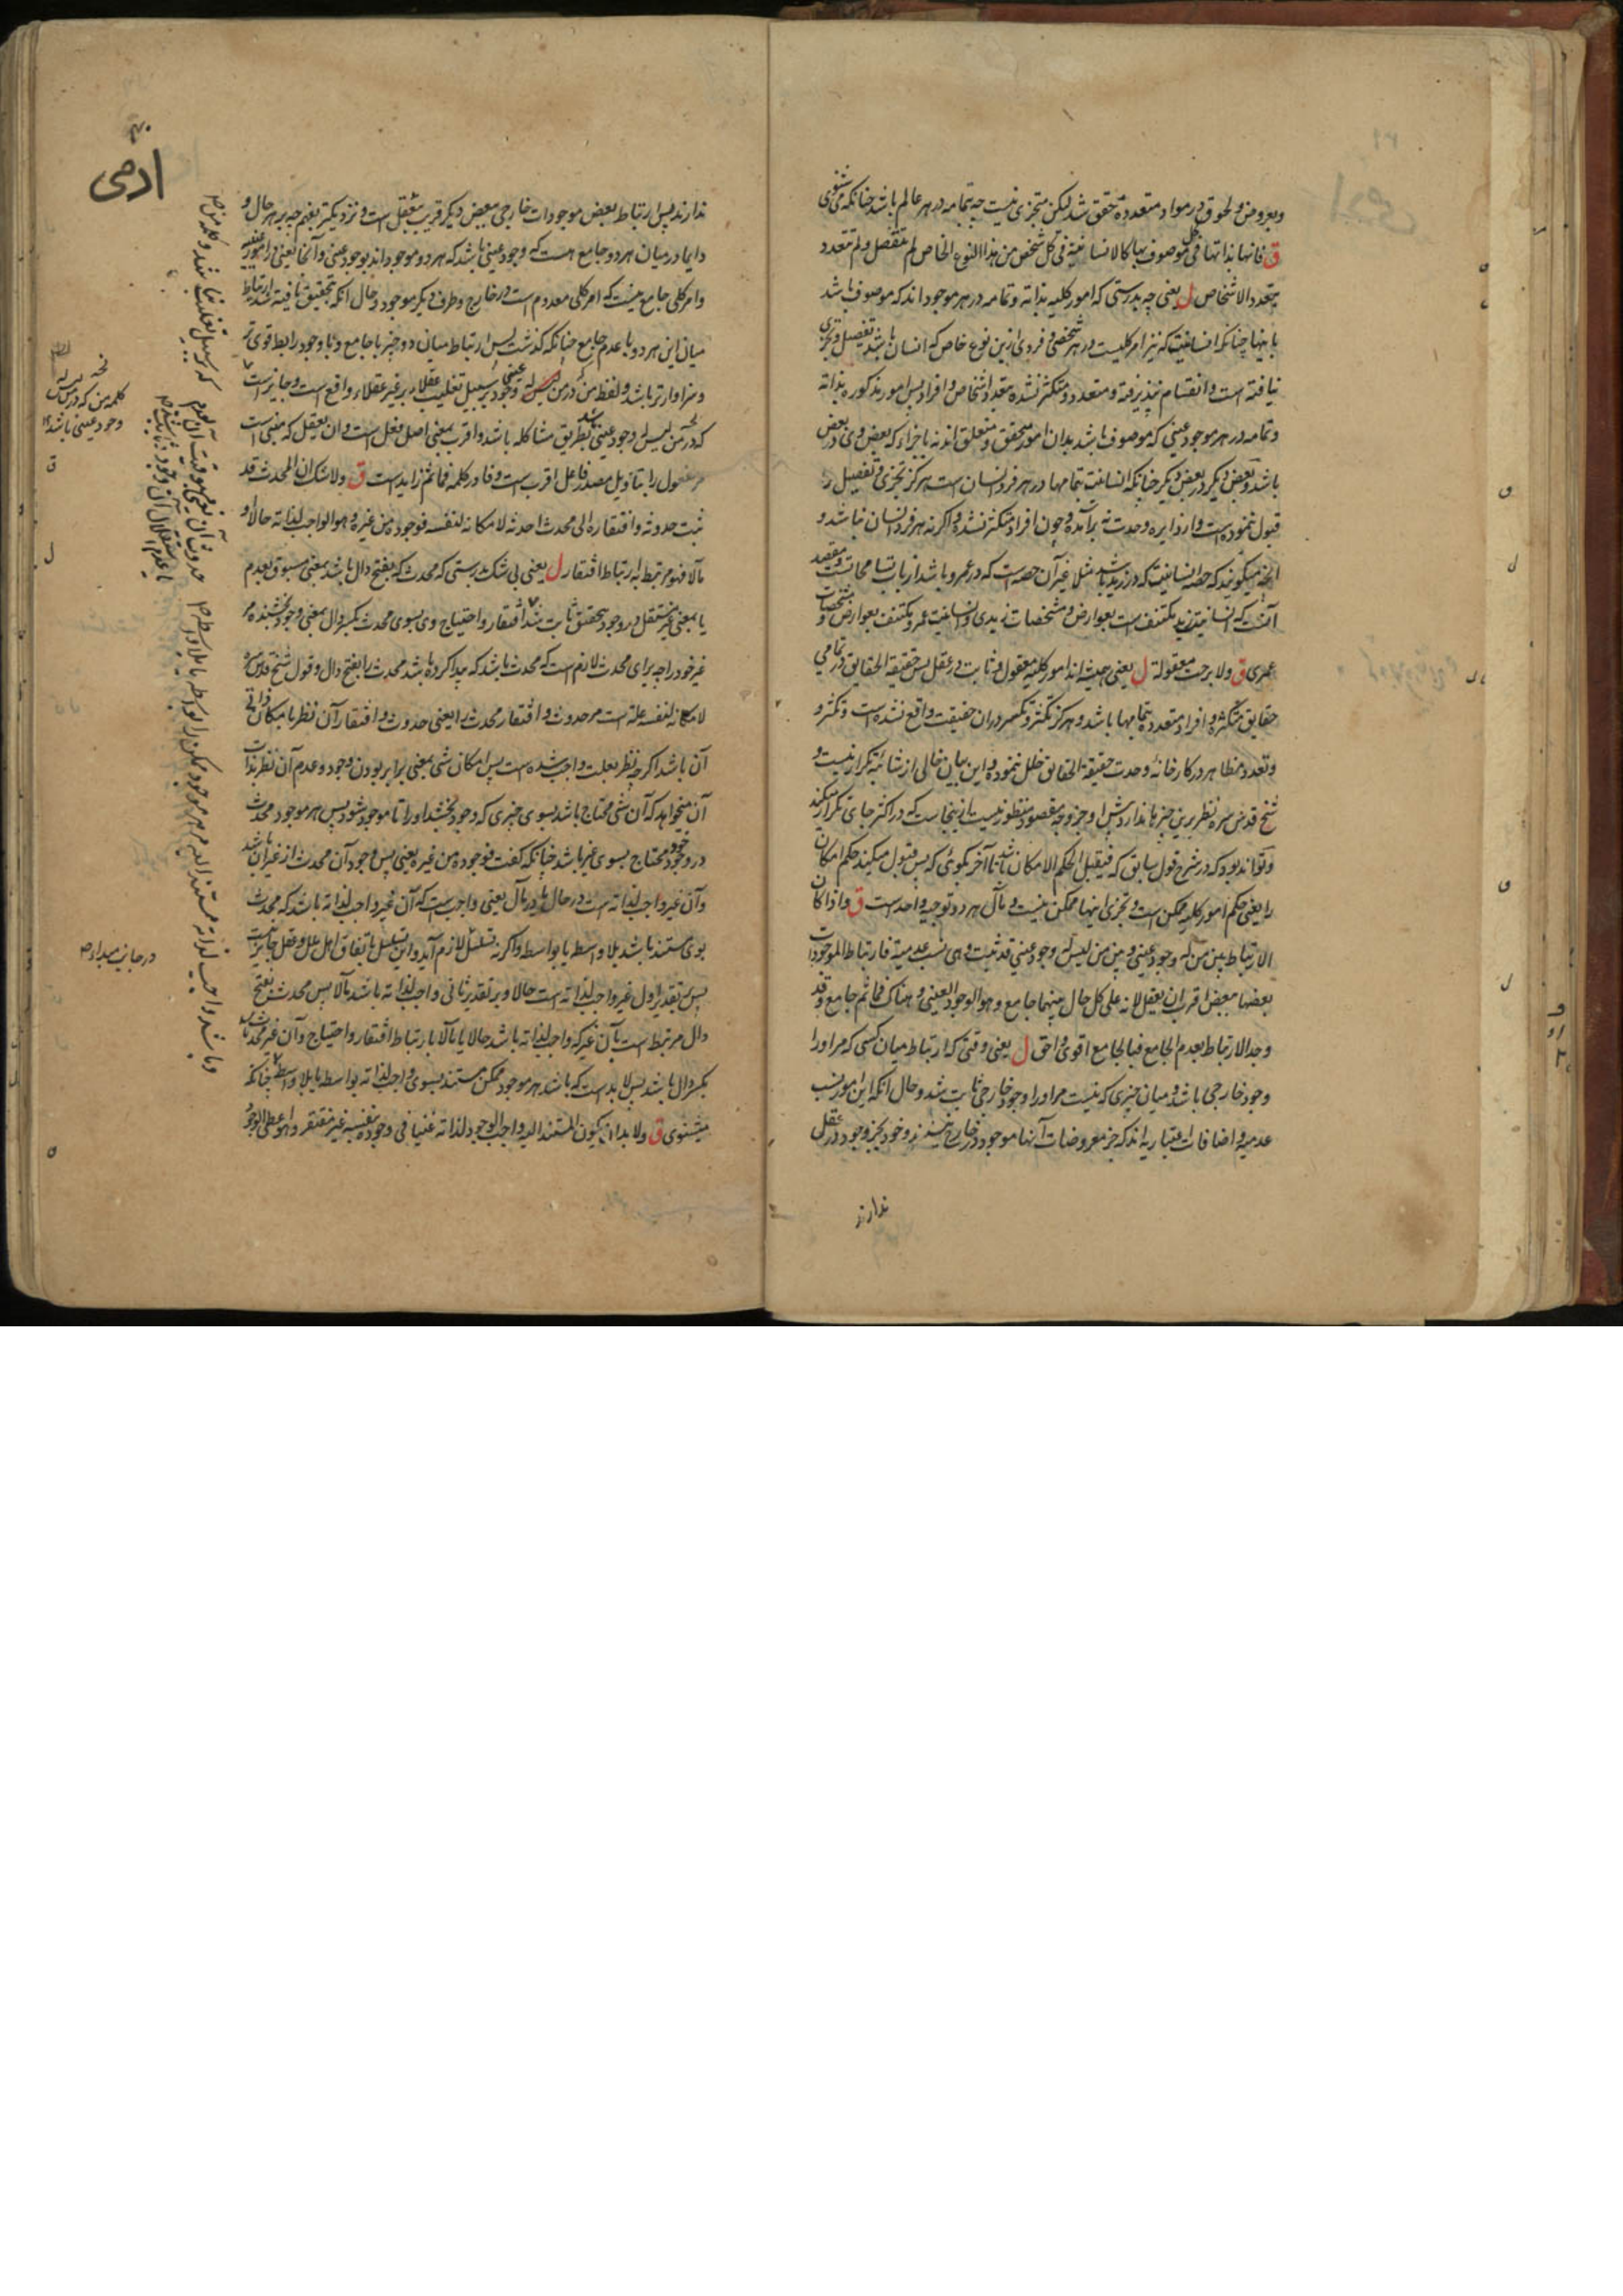 وبعروض ولحوق در مواد متعدده متحقق شد لیکن متجزی نیست چه بتمامه در هر عالم باشد چنانکه می شنوی
ق فانها بذاتها فی کل موصوف بها کالانسانیة فی کل شخص من هذا النوع الخاص لم تتفصل ولم تتعدد
بتعدد الاشخاص ل یعنی چه بدرستی که امور کلیه بذاته وتمامه در هر موجود اند که موصوف باشد
بانها چنانکه انسانیت که نیز امر کلیست در هر شخصی و فردی ازین نوع خاص که انسان باشد تفصیل وتجزی
نیافته است وانقسام نپذیرفته ومتعدد ومتکثر نشده بتعدد اشخاص وافراد پس امور مذکوره بذاته
وتمامه در هر موجود عینی که موصوف باشد بدان امور متحقق ومتعلق اند نه باجزاء که بعض وی در بعض
باشد وبعض دیگر در بعض دیگر چنانکه انسانیت بتمامها در هر فرد انسان است هرگز تجزی وتفصیل را
قبول ننموده است واز دایره وحدت نه برآمده وچون افراد متکثر نشده واگرنه هر فرد انسان نباشد و
آنچه میگویند که حصه انسانیت که در زید باشد مثلا غیر آن حصه است که در عمرو باشد از باب تسامحاتست ومقصد
آنست که انسانیت زید مکتنف است بعوارض ومشخصات زیدی وانسانیت عمرو مکتنف بعوارض ومشخصات
عمری ق ولا برحت معقولة ل یعنی همیشه اند امور کلیه معقول وثابت در عقل پس حقیقة الحقایق در تمامی
حقایق متکثره وافراد متعدده بتمامها باشد وهرگز تکثر وتکسر در ان حقیقت واقع نشده است وتکثر و
وتعدد مظاهر در کارخانه وحدت حقیقة الحقایق خلل ننموده واین بیان خالی از شائبه تکرار نیست و
شیخ قدس سره نظر برین چیزها ندارد پیش او جز وجه مقصود منظور نیست ازینجاست که در اکثر جای تکرار میکند
وتواند بود که در شرح قول سابق که فیقبل الحکم الامکان باشد تا آخر بگوئی که پس قبول میکند حکم امکان
را یعنی حکم امور کلیه ممکن است وتجزی اینها ممکن نیست ومآل هر دو توجیه واحد است ق واذا کان
الارتباط بین من له وجود عینی وبین من لیس له وجود عینی قد ثبت وهی نسب عدمیة فارتباط الموجودات
بعضها ببعض اقرب ان یعقل لانه علی کل حال بینهما جامع وهو الوجود العینی وهناک فما ثم جامع وقد
وجد الارتباط بعدم الجامع فبالجامع اقوی واحق ل یعنی وقتی که ارتباط میان کسی که مر او را
وجود خارجی باشد ومیان چیزی که نیست مر او را وجود خارجی ثابت شد وحال آنکه این امور نسب
عدمیه واضافات اعتباریه اند که جز معروضات آنها موجود در خارج نیستند وخود بجز وجود در عقل
ندارند
۴۰
ادمی
ندارند پس ارتباط بعض موجودات خارجی ببعض دیگر قریب بتعقل است ونزدیکتر بفهم چه بر هر حال و
دایما در میان هر دو جامع هست که وجود عینی باشد که هر دو موجود اند بوجود عینی وآنجا یعنی در امور عینیه
وامر کلی جامع نیست که امر کلی معدوم است در خارج وطرف دیگر موجود وحال آنکه تحقیق یافته شد ارتباط
میان این هر دو با عدم جامع چنانکه گذشت پس ارتباط میان دو چیز با جامع وبا وجود رابط قوی تر
وسزاوارتر باشد ولفظ من در من لیس له وجود عینی بر سبیل تغلیب عقلا بر غیر عقلاء واقع است وجایز است
که در من لیس له وجود عینی بطریق مشاکله باشد واقرب بمعنی اصل فعل است وان یعقل که مبنی است
مر مفعول را بتاویل مصدر فاعل اقرب است وفا در کلمه فما ثم زاید است ق ولا شک ان المحدث قد
ثبت حدوثه وافتقاره الی محدث احدثه لامکانه لنفسه فوجوده من غیره وهو الواجب لذاته حالا او
مآلا فهو مرتبط به ارتباط افتقار ل یعنی بی شک بدرستی که محدث که بفتح دال باشد بمعنی مسبوق بعدم
یا بمعنی غیر مستقل در وجود بتحقیق ثابت شد افتقار واحتیاج وی بسوی محدث بکسر دال بمعنی وجود بخشنده مر
غیر خود را چه برای محدث لازم است که محدث باشد که پیدا کرده باشد محدث را بفتح دال وقول شیخ قدس سره
لامکانه لنفسه علت است مر حدوث وافتقار محدث را یعنی حدوث وافتقار آن نظر بامکان ذاتی
آن باشد اگرچه نظر بعلت واجب شده است پس امکان شی بمعنی برابر بودن وجود وعدم آن نظر بذات
آن میخواهد که آن شی محتاج باشد بسوی چیزی که وجود بخشد او را تا موجود شود پس هر موجود محدث
در وجود خود محتاج بسوی غیر باشد چنانکه گفت فوجوده من غیره یعنی پس وجود آن محدث از غیر آن باشد
وآن غیر واجب لذاته است در حال یا در مآل یعنی واجب است که آن غیر واجب لذاته باشد که محدث
بوی مستند باشد بلا واسطه یا بواسطه واگرنه تسلسل لازم آید واین تسلسل باتفاق اهل ملل وعقل جایز نیست
پس بتقدیر اول غیر واجب لذاته است حالا وبر تقدیر ثانی واجب لذاته باشد مآلا پس محدث بفتح
دال مرتبط است بآن غیر که واجب لذاته باشد حالا یا مآلا بارتباط افتقار واحتیاج وآن غیر محدث باشد
بکسر دال باشد پس لابد است که باشد هر موجود ممکن مستند بسوی واجب لذاته بواسطه یا بلا واسطه چنانکه
میشنوی ق ولابد ان یکون المستند الیه واجب الوجود لذاته غنیا فی وجوده بنفسه غیر مفتقر وهو اعطی الوجود
کلمه من که در من لیس له
وجود عینی باشد ۱۲
در جانب مبدا ۱۲